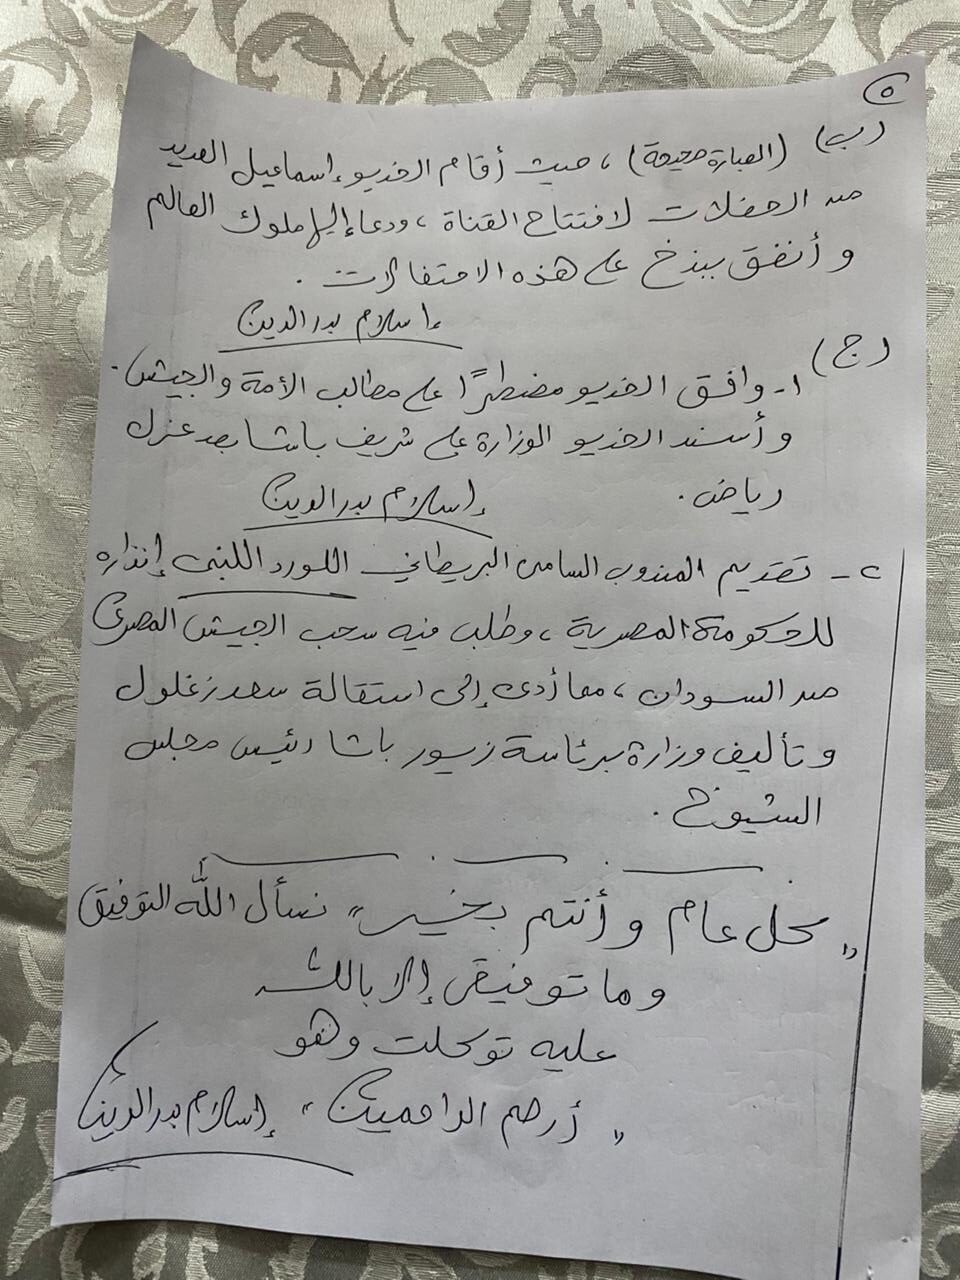 ٥
(ب) (العبارة صحيحة) ، حيث أقام الخديو إسماعيل العديد
من الحفلات لافتتاح القناة ، ودعا إليها ملوك العالم
وأنفق ببذخ على هذه الاحتفالات .
إسلام بدر الدين
(ج) ١- وافق الخديو مضطرًا على مطالب الأمة والجيش .
وأسند الخديو الوزارة على شريف باشا بعد عزل
رياض .
إسلام بدر الدين
٢- تقديم المندوب السامى البريطاني اللورد اللنبى إنذاره
للحكومة المصرية ، وطلب فيه سحب الجيش المصرى
من السودان ، مما أدى إلى استقالة سعد زغلول
وتأليف وزارة برئاسة زيور باشا رئيس مجلس
الشيوخ .
" كل عام وأنتم بخير " نسأل الله التوفيق
وما توفيقى إلا بالله
عليه توكلت وهو
" أرحم الراحمين " إسلام بدر الدين